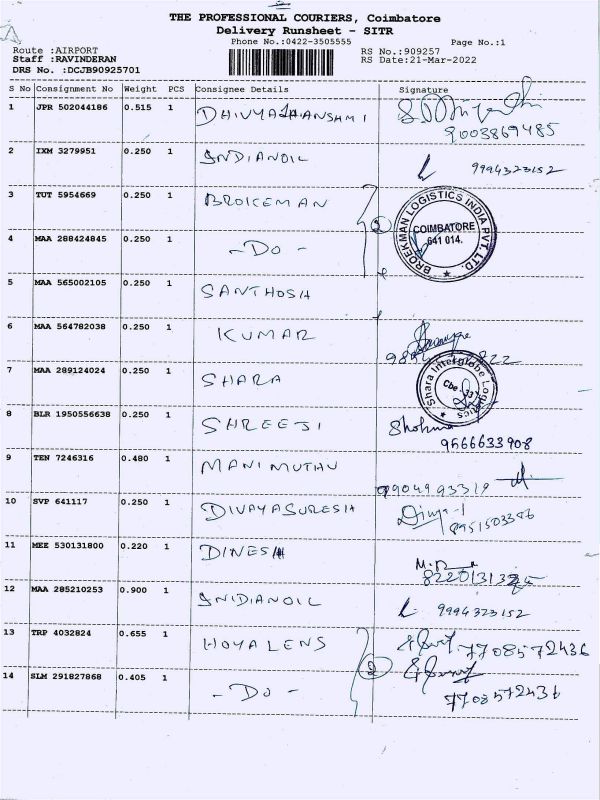 THE PROFESSIONAL COURIERS, Coimbatore
Delivery Runsheet - SITR
Phone No.:0422-3505555 Page No.:1
Route :AIRPORT RS No.:909257
Staff :RAVINDERAN RS Date:21-Mar-2022
DRS No. :DCJB90925701
S No Consignment No Weight PCS Consignee Details Signature
1 JPR 502044186 0.515 1
9003869485
2 IXM 3279951 0.250 1 INDIANOIL 9994323152
3 TUT 5954669 0.250 1 BROKEMAN
BROEKMAN LOGISTICS INDIA PVT. LTD.
COIMBATORE
641 014.
4 MAA 288424845 0.250 1 - DO - 2
5 MAA 565002105 0.250 1 SANTHOSH
6 MAA 564782038 0.250 1 KUMAR
7 MAA 289124024 0.250 1 SHARA
Shara Interglobe Logistics
Cbe
8 BLR 1950556638 0.250 1 SHREEJI
9566633908
9 TEN 7246316 0.480 1 MANIMUTHU
9904993319
10 SVP 641117 0.250 1 DIVAYASURESH
11 MEE 530131800 0.220 1 DINESH
12 MAA 285210253 0.900 1 INIDIANOIL 9994323152
13 TRP 4032824 0.655 1 HOYALENS 7708572436
2
14 SLM 291827868 0.405 1 - DO - 7708572436